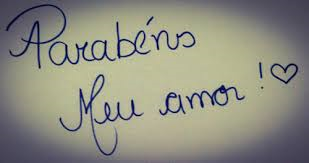 Parabéns
Meu amor! ♡